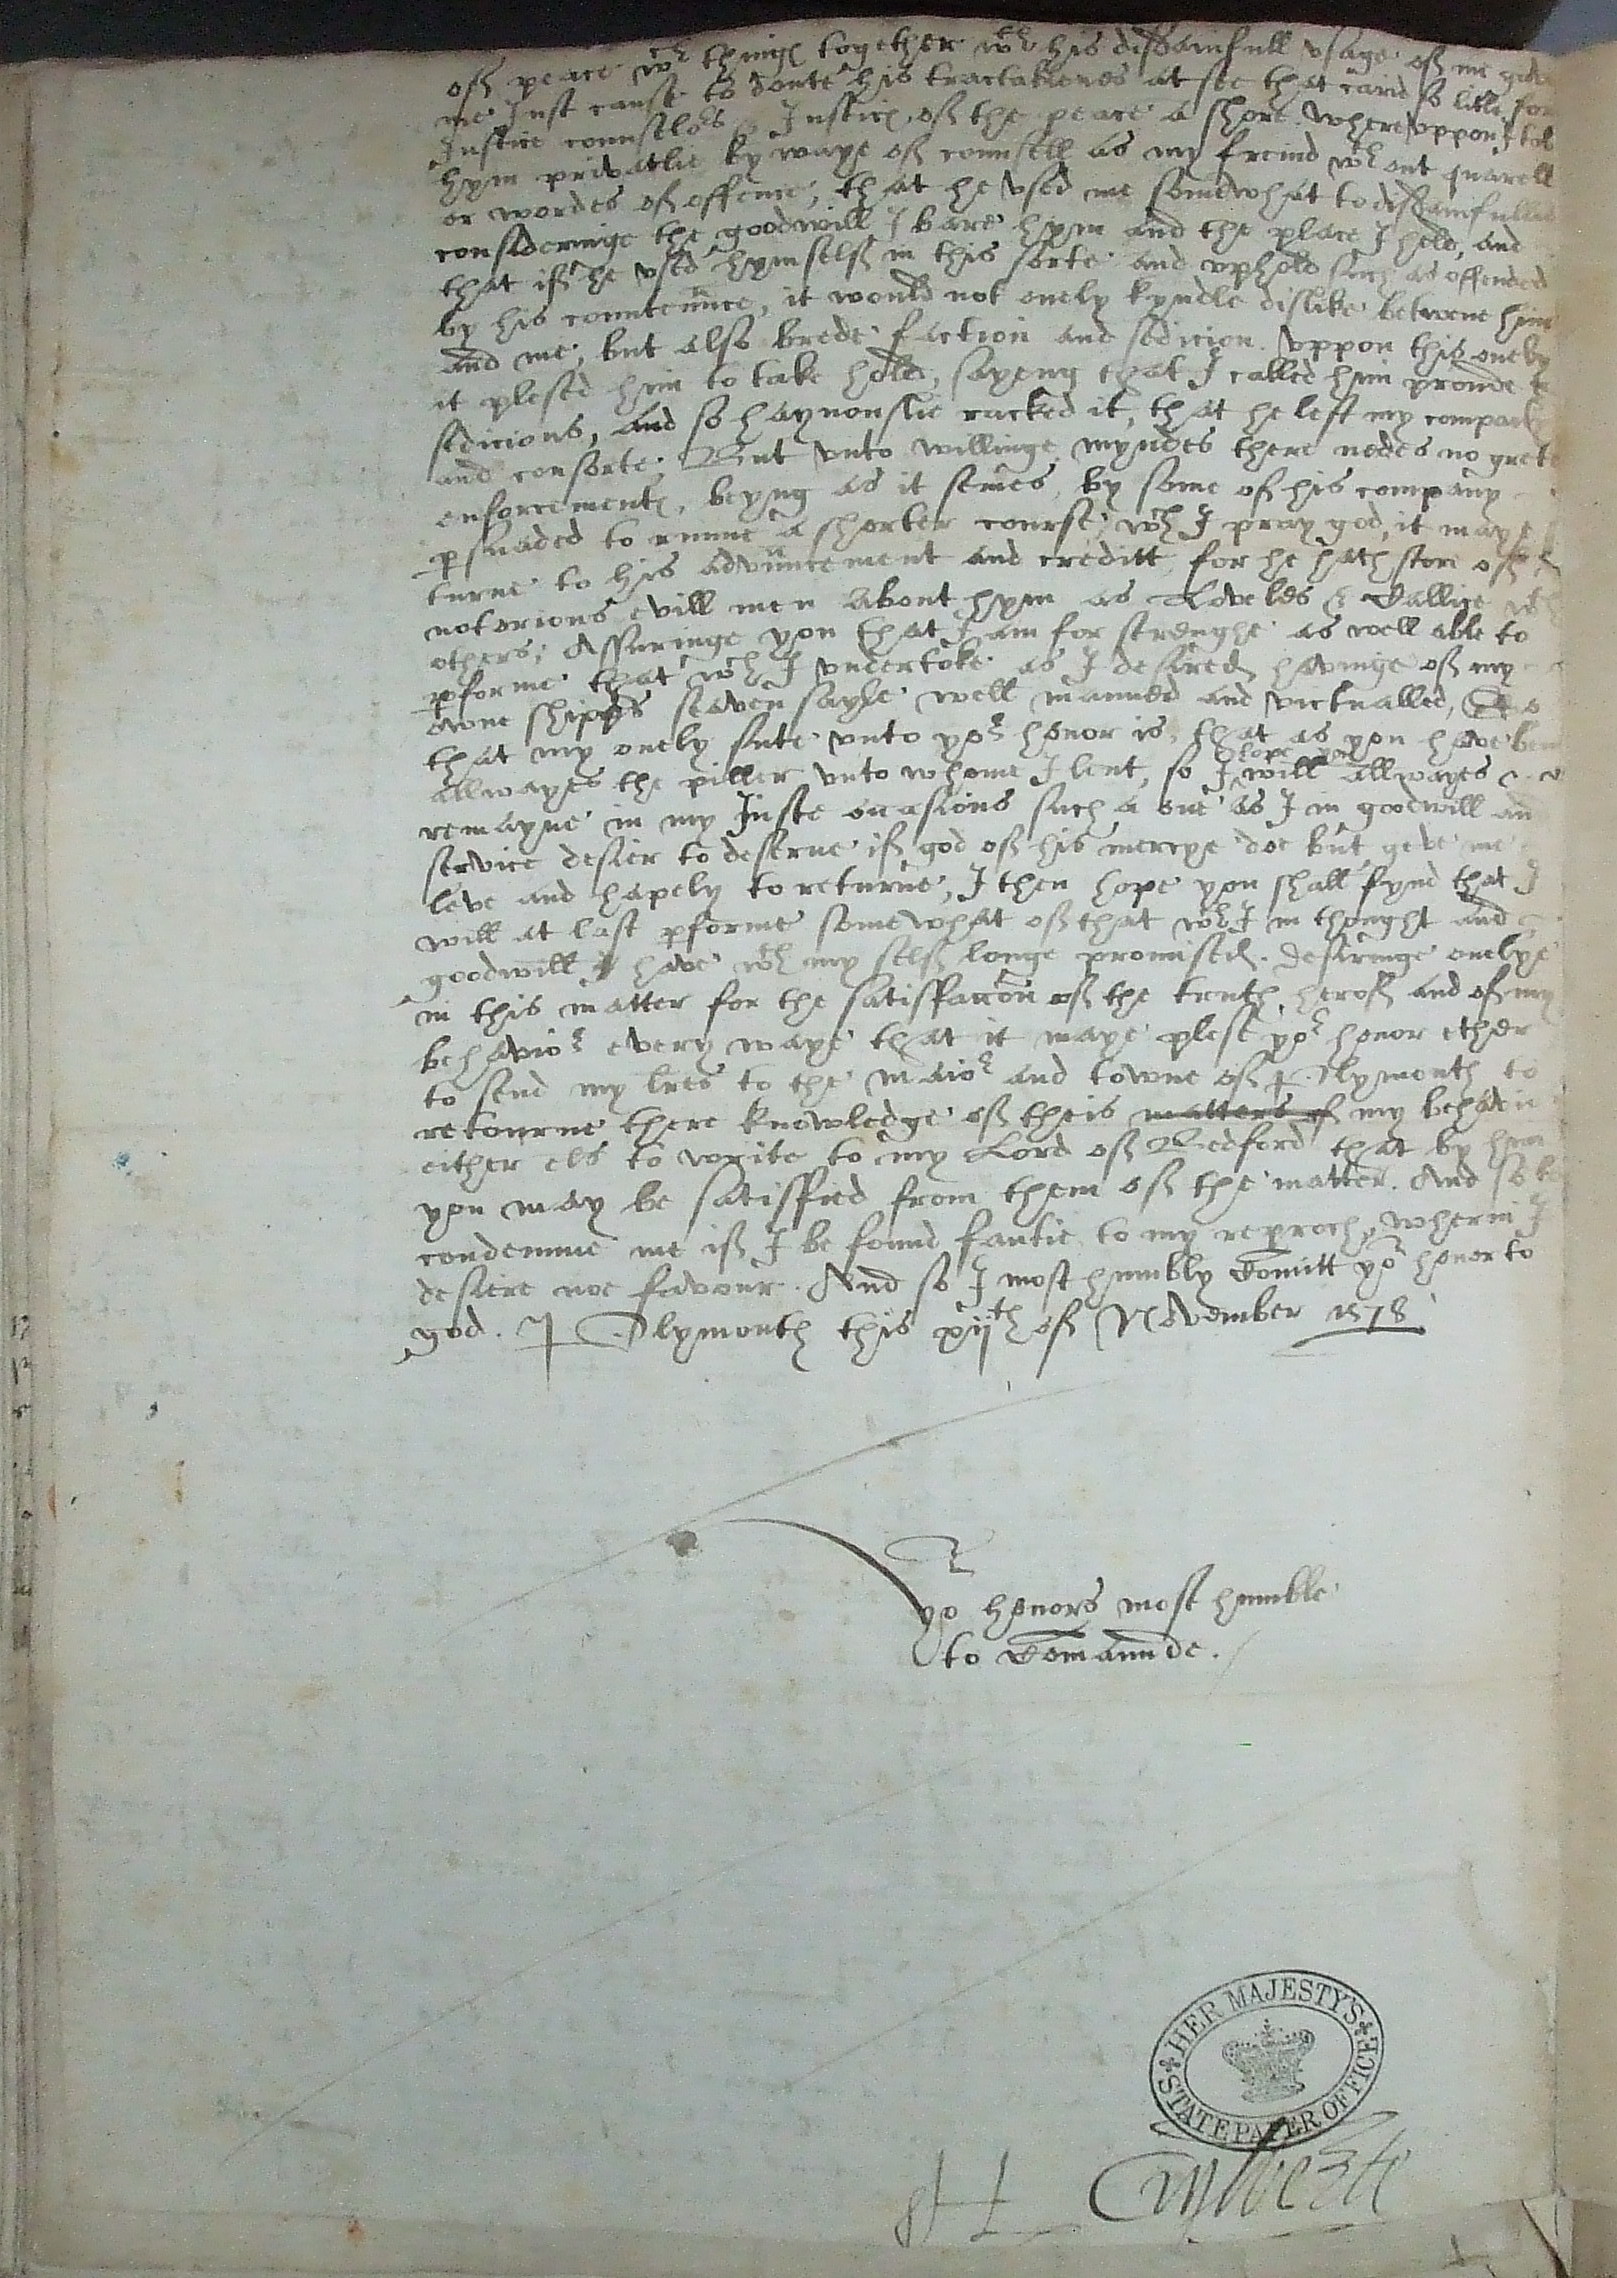 of peace wch things together wth his disdainfull usage of me
me Just cause to doute his tractablenes at see that carid so litle for
Justice counselors Justices of the peace a shore. whereuppon I
hym privatlie by waye of counsell as my freind wth out quarell
or wordes of offence, that he used me somewhat to disdainfullie
consideringe the goodwill I bare hym and the place I held, and
that if he used hymself in this sorte and uphold such as offended
by his countenunce, it would not onely kyndle dislike betwene him
and me, but also brede faction and sedicion. Uppon this onely
it plesed him to take hold, sayeng that I called him proude
sedicious, and so haynouslie racked it, that he left my company
and consorte. But unto willinge myndes there nedes no grete
enforcements, beyng as it semes, by some of his company
pswaded to runne a shorter course, wch I pray god, it maye
turne to his advauncement and creditt, for he hath store of
notorious evill men about hym as Loveles & Callice wth
others, Assuringe you that I am for strenghe as well able to
pforme that wch I undertoke as I desired, havinge of my
owne shipps seaven sayle well manned and victualled, So
that my onely sute unto yor honor is, that as you have ben
allwayes the piller unto whome I lent, so I hope you will allwayes
remayne in my Juste occasions such a one as I in goodwill and
service desier to deserve if god of his mercye doe but geve me
leve and hapely to returne, I then hope you shall fynd that I
will at last pforme somewhat of that wch I in thought and
goodwill have wth my self longe promised. Desiringe onelye
in this matter for the satisfaccon of the truth herof and of my
behavior every waye that it maye plese yor honor ether
to send my lres to the maior and towne of Plymouth to
retourne there knowledge of theis matters of my behavior
either els to write to my Lord of Bedford that by him
you may be satisfied from them of the matter. And so to
condemne me if I be found fautie to my reproch, wherin I
desiere noe favour. And so I most humbly Comitt yor honor to
god. Plymouth this xijth of November 1578
yor honors most humble
to Comaunde.
HER MAJESTY'S STATE PAPER OFFICE
H Gylberte